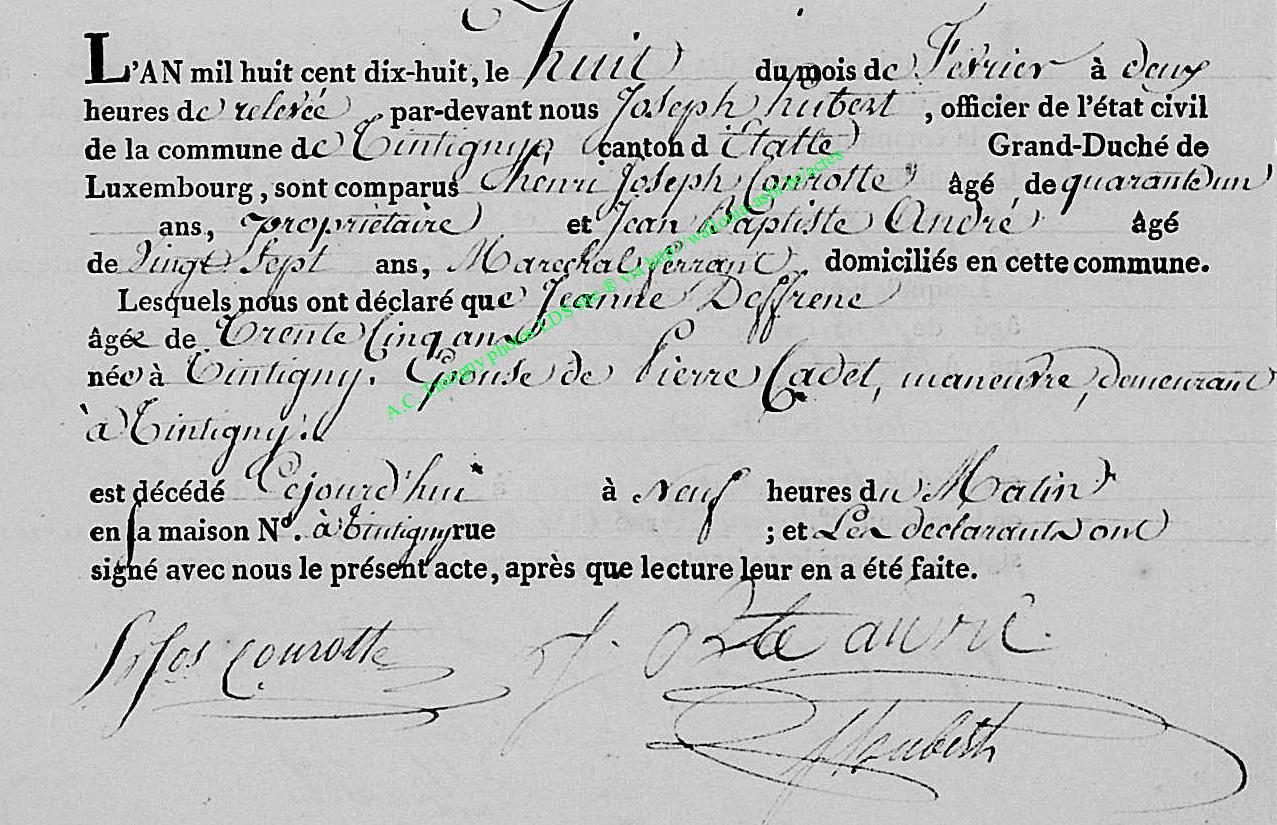 L'AN mil huit cent dix-huit, le huit du mois de Fevrier à deux
heures de relevée, par-devant nous Joseph hubert, officier de l'état civil
de la commune de Tintigny, canton d'Etalle Grand-Duché de
Luxembourg, sont comparus henri Joseph Courotte âgé de quarante un
ans, propriétaire et Jean Baptiste André âgé
de Vingt Sept ans, Marechal ferrant, domiciliés en cette commune.
Lesquels nous ont déclaré que Jeanne Deffrene
âgée de Trente Cinq ans
née à Tintigny. Epouse de Pierre Cadet, maneuvre, demeurant
à Tintigny.
est décédé Cejourd'hui à Neuf heures du Matin
en sa maison N°. à Tintigny rue ; et Les declarants ont
signé avec nous le présent acte, après que lecture leur en a été faite.
Courotte J. Bte andré
A.C. Tintigny photos LDS site ® via http://wallonia-asbl.be/actes